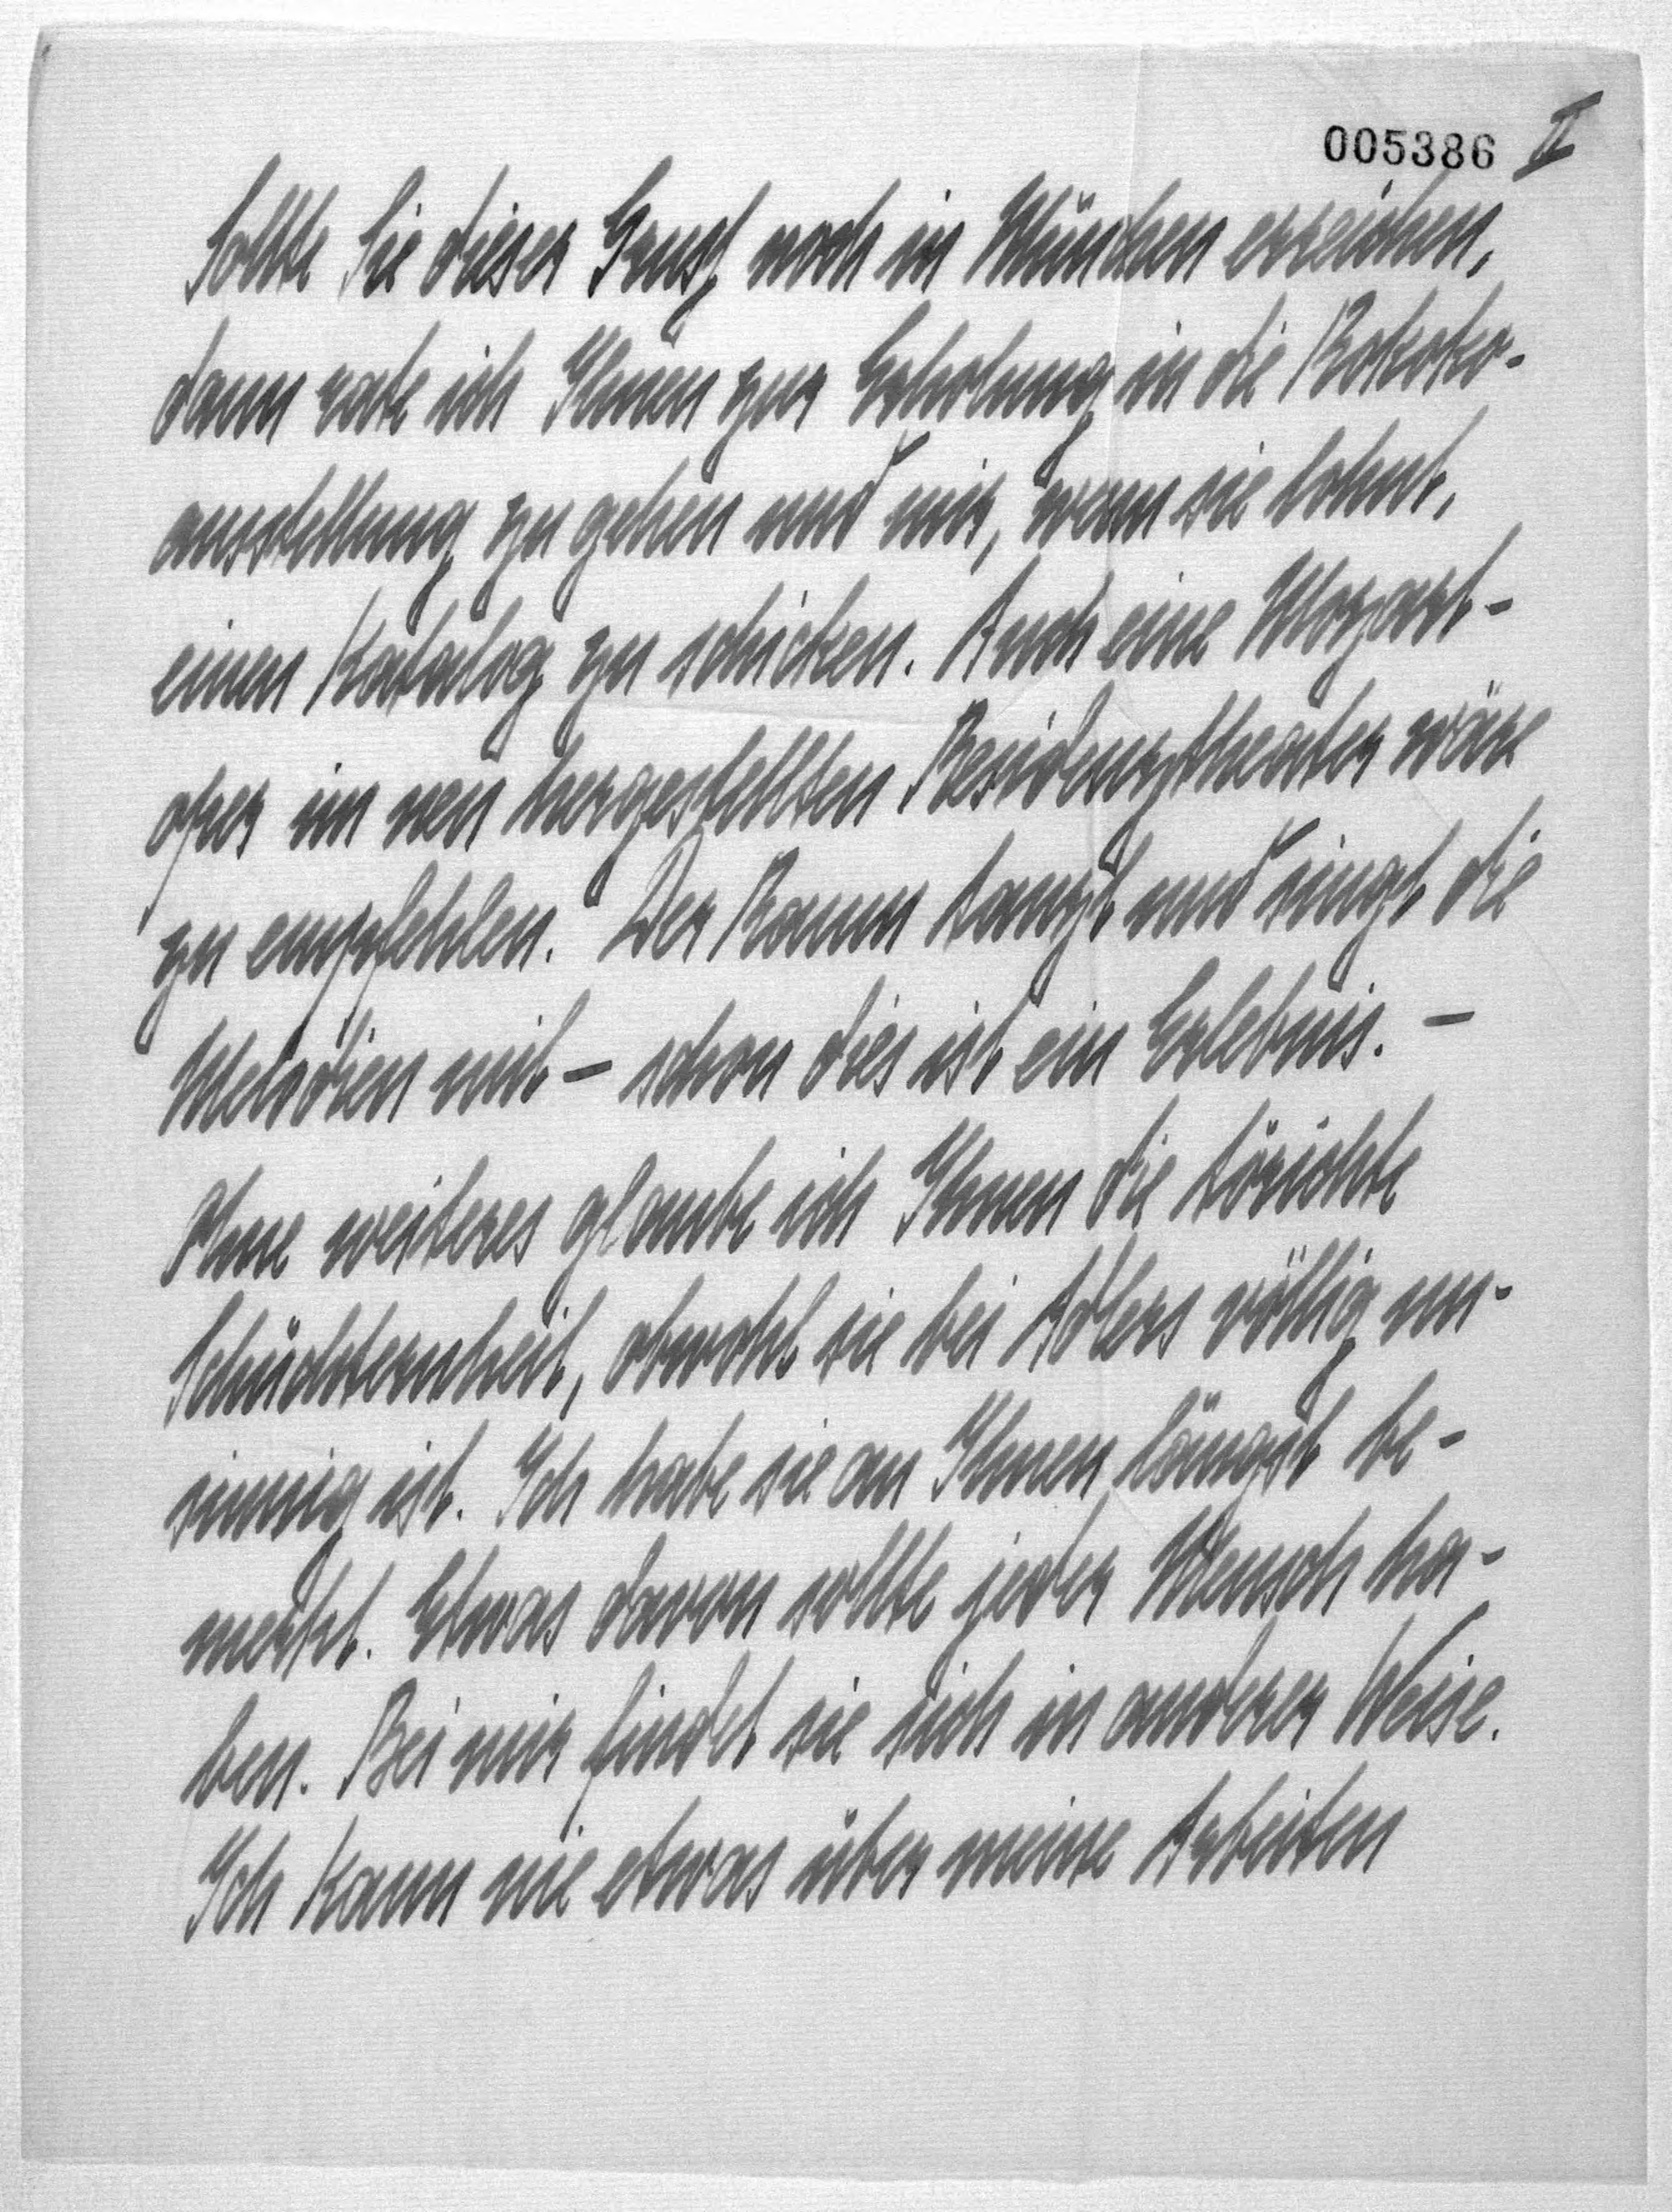 005386 II
Sollte Sie dieser Gruß noch in München erreichen,
dann rate ich Ihnen zur Erholung in die Rokoko-
ausstellung zu gehen und mir, wenn sie lohnt,
einen Katalog zu schicken. Auch eine Mozart-
oper im neu hergestellten Residenztheater wäre
zu empfehlen. Der Raum tanzt und singt die
Melodien mit – schon dies ist ein Erlebnis. –
Ohne weiteres glaube ich Ihnen die törichte
Schüchternheit, obwohl sie bei Adlers völlig un-
sinnig ist. Ich habe sie an Ihnen längst be-
merkt. Etwas davon sollte jeder Mensch ha-
ben. Bei mir findet sie sich in anderer Weise.
Ich kann nie etwas über meine Arbeiten